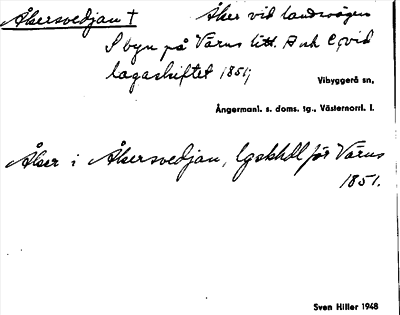 Åkersvedjan † Åker vid landsvägen
I byn på Värns litt. A och C, vid
lagaskiftet 1851;
Vibyggerå sn,
Ångermanl. s. doms. tg., Västernorrl. l.
Åker i Åkersvedjan, Lgskhdl för Värns
1851.
Sven Hiller 1948